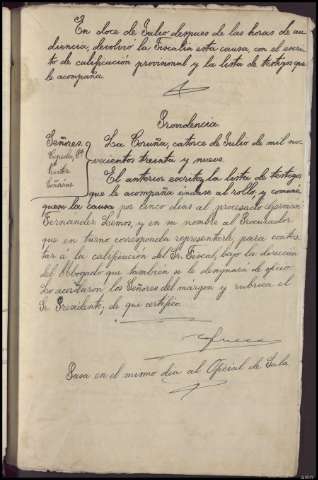 En doce de Julio despues de las horas de au-
diencia, devolvió la Fiscalia esta causa, con el escri-
to de calificacion provisional y la lista de testigos que
le acompaña.
Providencia
Señores
La Coruña, catorce de Julio de mil no-
vecientos treinta y nueve.
El anterior escrito y la lista de testigos
que le acompaña únanse al rollo, y comuni-
quese la causa por cinco dias al procesado German
Fernandez Lemos, y en su nombre al Procurador
que en turno corresponda representarle, para contes-
tar á la calificacion del Sr. Fiscal, bajo la direccion
del Abogado que tambien se le designará de oficio.
Lo acordaron los Señores del margen y rubrica el
Sr. Presidente, de que certifico.
Pasa en el mismo dia al Oficial de Sala.